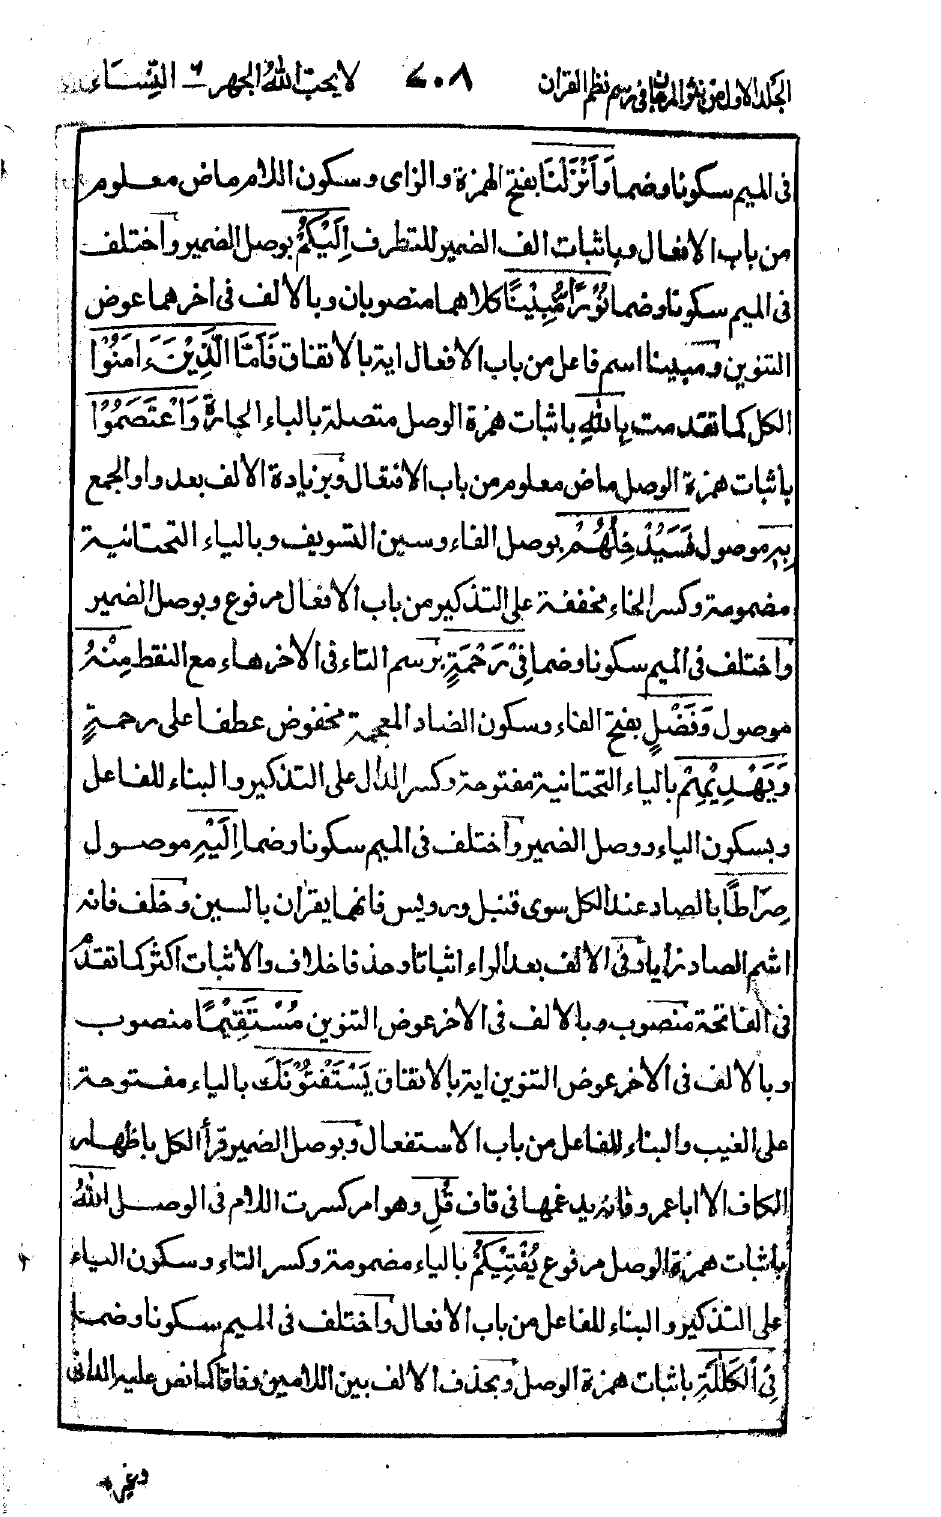 الجلد الاول من نثر المرجان فى رسم نظم القران ٧٠٨ لا يحب الله الجهر ٦ النساء
فى الميم سكونا وضما وَاَنْزَلْنَا بفتح الهمزة والزاى وسكون اللام ماض معلوم
من باب الافعال وباثبات الف الضمير للتطرف اِلَيْكُمْ بوصل الضمير واختلف
فى الميم سكونا وضما نُوْرًا مُّبِيْنًا كلاهما منصوبان وبالالف فى اخرهما عوض
التنوين ومبينا اسم فاعل من باب الافعال اية بالاتفاق فَاَمَّا الَّذِيْنَ ءَامَنُوْا
الكل كما تقدمت بِاللّٰهِ باثبات همزة الوصل متصلة بالباء الجارة وَاعْتَصَمُوْا
باثبات همزة الوصل ماض معلوم من باب الافتعال وبزيادة الالف بعد واو الجمع
بِهٖ موصول فَسَيُدْخِلُهُمْ بوصل الفاء وسين التسويف وبالياء التحتانية
مضمومة وكسر الخاء مخففة على التذكير من باب الافعال مرفوع وبوصل الضمير
واختلف فى الميم سكونا وضما فِىْ رَحْمَةٍ برسم التاء فى الاخر هاء مع النقط مِنْهُ
موصول وَفَضْلٍ بفتح الفاء وسكون الضاد المعجمة مخفوض عطفا على رحمةٍ
وَيَهْدِيْهِمْ بالياء التحتانية مفتوحة وكسر الدال على التذكير والبناء للفاعل
وبسكون الياء ووصل الضمير واختلف فى الميم سكونا وضما اِلَيْهِ موصول
صِرَاطًا بالصاد عند الكل سوى قنبل ورويس فانهما يقرأن بالسين وخلف فانه
اشم الصاد زايا وفى الالف بعد الراء اثباتا وحذفا خلاف والاثبات اكثر كما تقدم
فى الفاتحة منصوب وبالالف فى الاخر عوض التنوين مُسْتَقِيْمًا منصوب
وبالالف فى الاخر عوض التنوين اية بالاتفاق يَسْتَفْتُوْنَكَ بالياء مفتوحة
على الغيب والبناء للفاعل من باب الاستفعال وبوصل الضمير قرأ الكل باظهار
الكاف الا ابا عمرو فانه يدغمها فى قاف قُلِ وهو امر كسرت اللام فى الوصل اللّٰهُ
باثبات همزة الوصل مرفوع يُفْتِيْكُمْ بالياء مضمومة وكسر التاء وسكون الياء
على التذكير والبناء للفاعل من باب الافعال واختلف فى الميم سكونا وضما
فِى الْكَلٰلَةِ باثبات همزة الوصل وبحذف الالف بين اللامين وفاقا كما نص عليه الدانى
وغيره